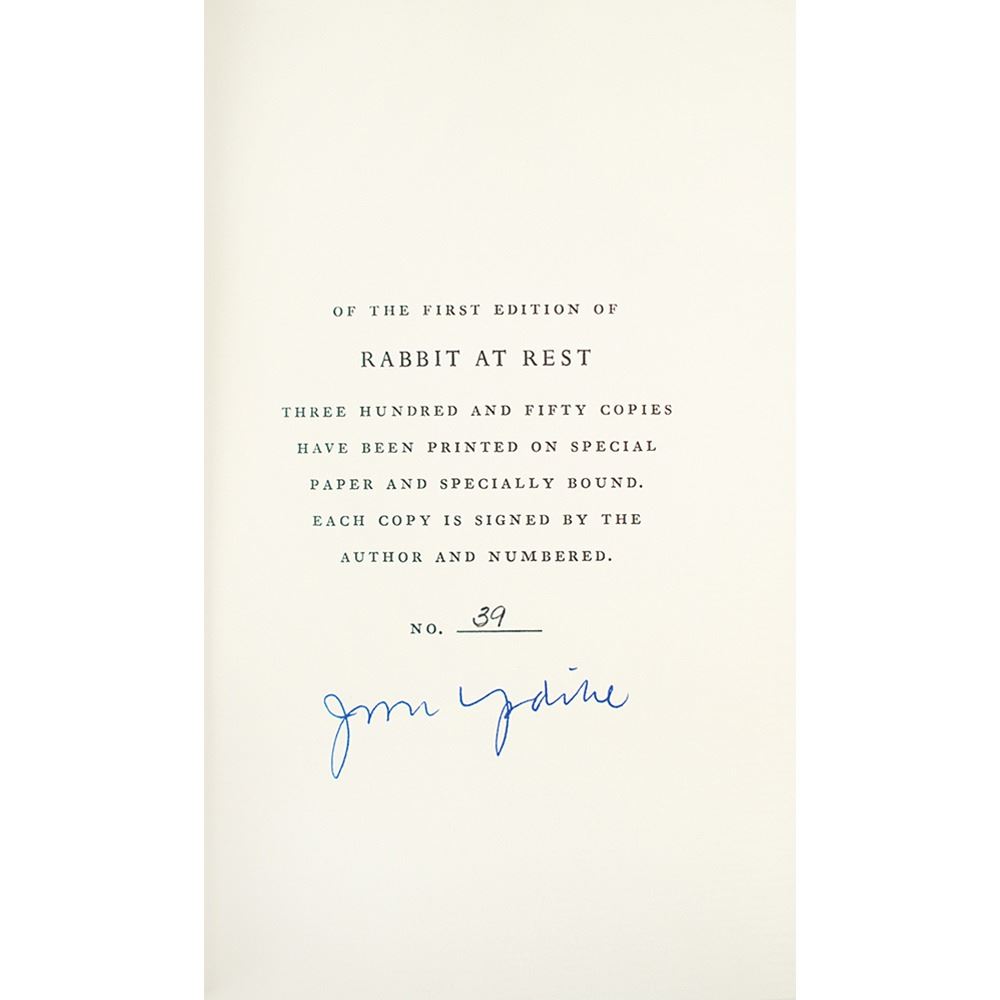 OF THE FIRST EDITION OF
RABBIT AT REST
THREE HUNDRED AND FIFTY COPIES
HAVE BEEN PRINTED ON SPECIAL
PAPER AND SPECIALLY BOUND.
EACH COPY IS SIGNED BY THE
AUTHOR AND NUMBERED.
NO. 39
John Updike